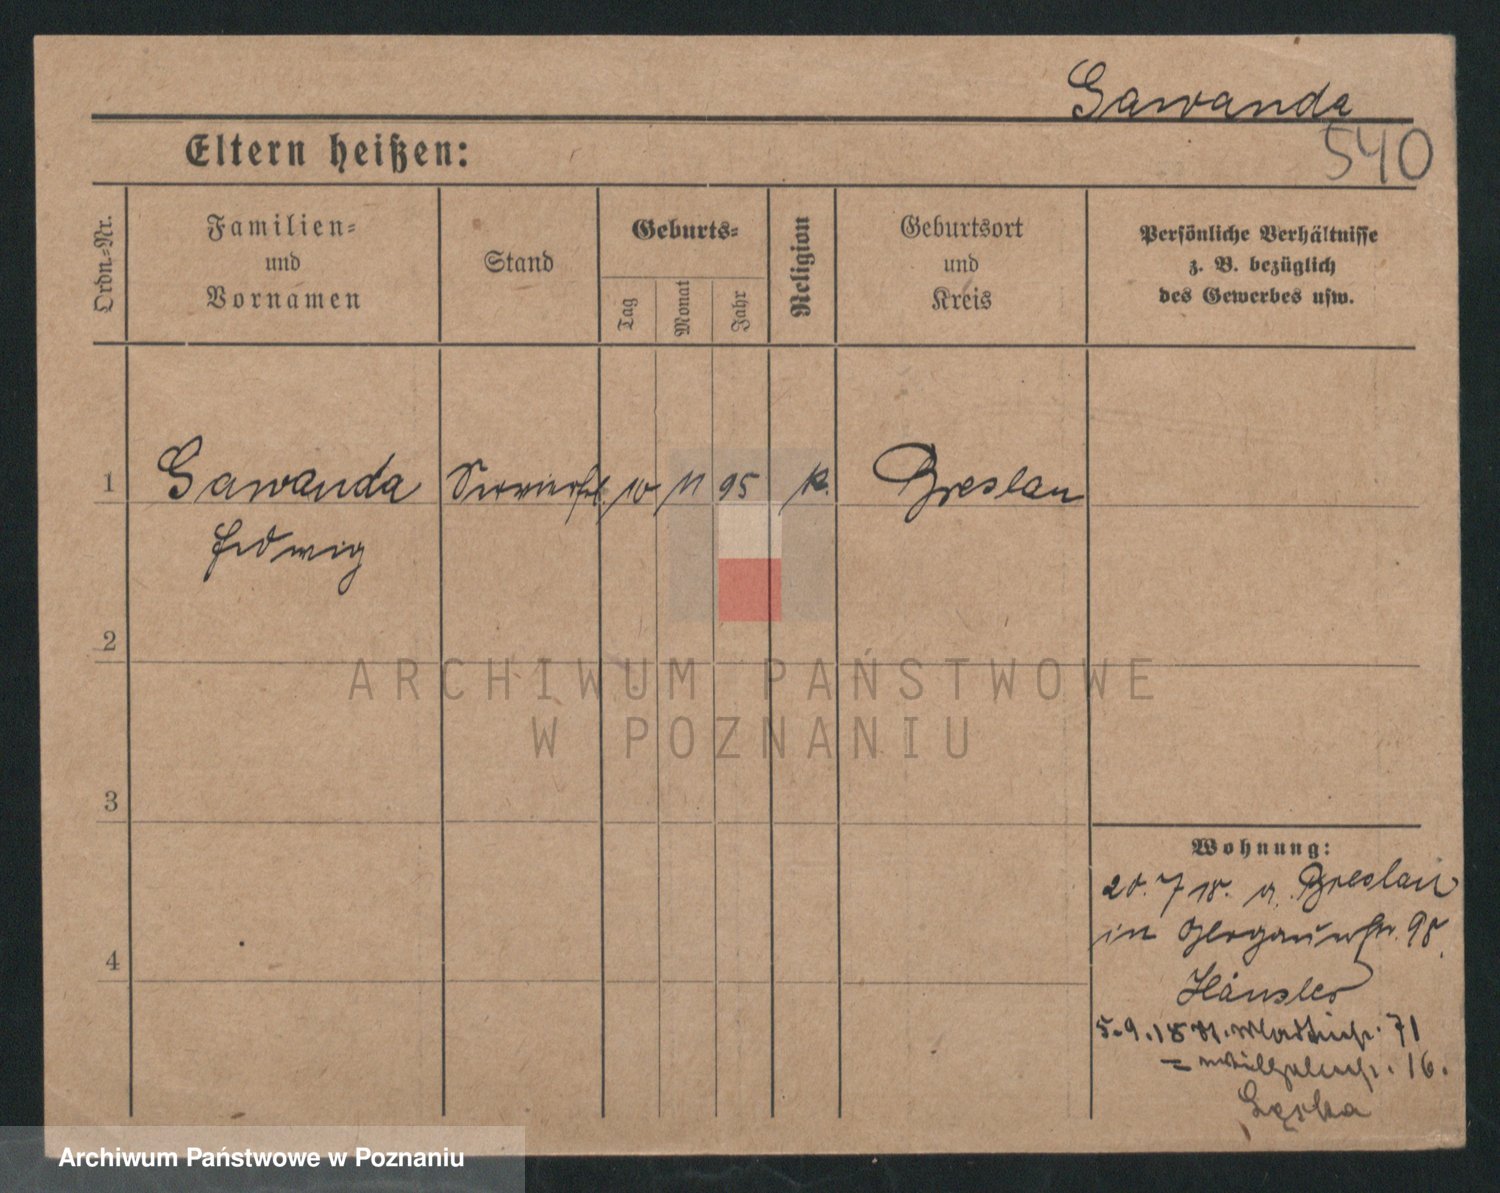 Gawanda
540
Eltern heißen:
Ordn.-Nr.
Familien-
und
Vornamen
Stand
Geburts-
Tag
Monat
Jahr
Religion
Geburtsort
und
Kreis
Persönliche Verhältnisse
z. B. bezüglich
des Gewerbes usw.
1 Gawanda 10 11 95 k. Breslau
Hedwig
2
ARCHIWUM PAŃSTWOWE
W POZNANIU
3
Wohnung:
20. 7 18. n. Breslau
in Glogauerstr. 98.
4
Hänsler
5.9.18 71
16.
Archiwum Państwowe w Poznaniu